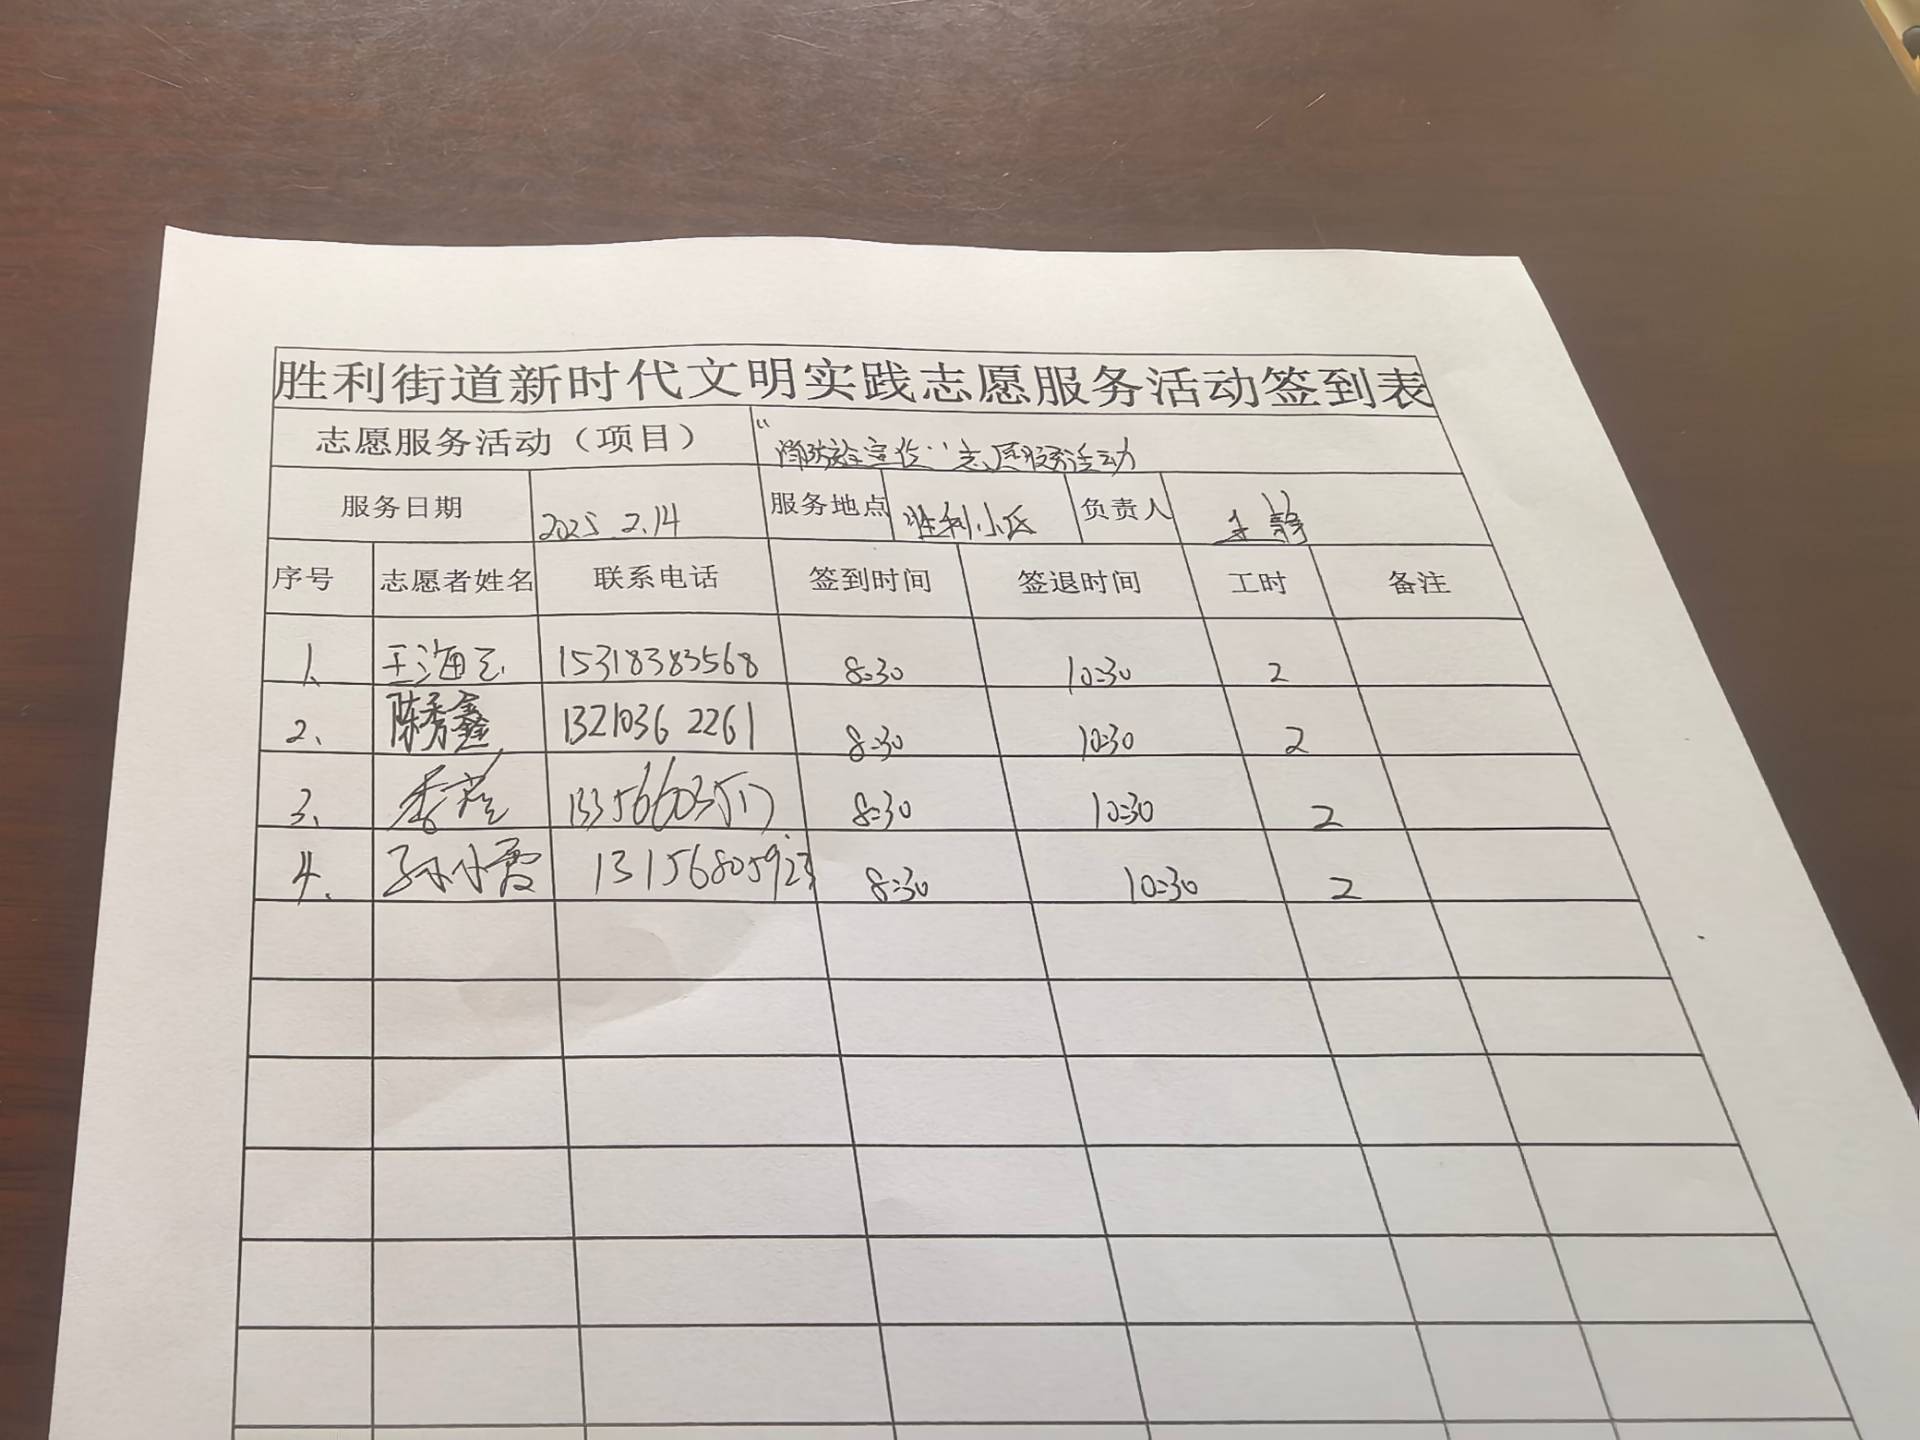 胜利街道新时代文明实践志愿服务活动签到表
志愿服务活动（项目） “消防安全宣传”志愿服务活动
服务日期 2025.2.14 服务地点 胜利小区 负责人 王静
序号 志愿者姓名 联系电话 签到时间 签退时间 工时 备注
1、 王海玉 15318383568 8:30 10:30 2
2、 陈秀鑫 13210362261 8:30 10:30 2
3、 8:30 10:30 2
4、 孙小霞 8:30 10:30 2